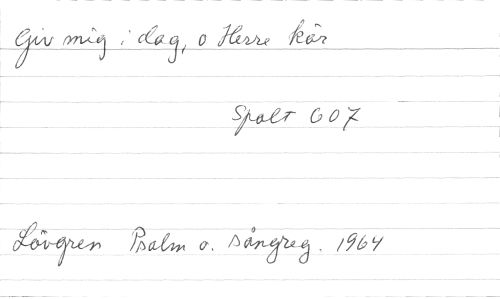 Giv mig i dag, o Herre kär
Spalt 607
Lövgren Psalm o. sångreg. 1964